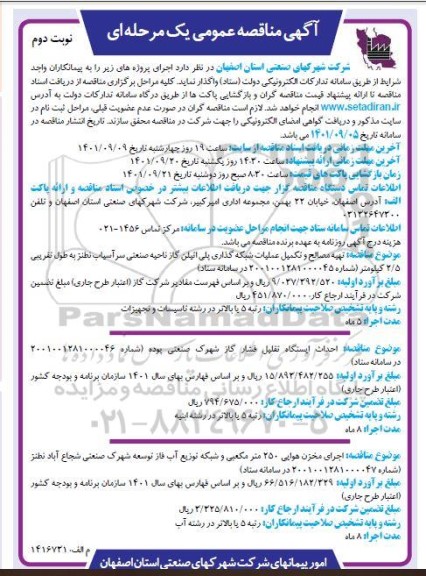 آگهی مناقصه عمومی یک مرحله‌ای
نوبت دوم
شرکت شهرکهای صنعتی استان اصفهان در نظر دارد اجرای پروژه های زیر را به پیمانکاران واجد
شرایط از طریق سامانه تدارکات الکترونیکی دولت (ستاد) واگذار نماید. کلیه مراحل برگزاری مناقصه از دریافت اسناد
مناقصه تا ارائه پیشنهاد قیمت مناقصه گران و بازگشایی پاکت ها از طریق درگاه سامانه تدارکات دولت به آدرس
www.setadiran.ir انجام خواهد شد. لازم است مناقصه گران در صورت عدم عضویت قبلی، مراحل ثبت نام در
سایت مذکور و دریافت گواهی امضای الکترونیکی را جهت شرکت در مناقصه محقق سازند. تاریخ انتشار مناقصه در
سامانه تاریخ ۱۴۰۱/۰۹/۰۵ می باشد.
آخرین مهلت زمانی دریافت اسناد مناقصه از سایت: ساعت ۱۹ روز چهارشنبه تاریخ ۱۴۰۱/۰۹/۰۹
آخرین مهلت زمانی ارائه پیشنهاد: ساعت ۱۴:۳۰ روز یکشنبه تاریخ ۱۴۰۱/۰۹/۲۰
زمان بازگشایی پاکت های قیمت: ساعت ۸:۳۰ صبح روز دوشنبه تاریخ ۱۴۰۱/۰۹/۲۱
اطلاعات تماس دستگاه مناقصه گزار جهت دریافت اطلاعات بیشتر در خصوص اسناد مناقصه و ارائه پاکت
الف: آدرس اصفهان، خیابان ۲۲ بهمن، مجموعه اداری امیرکبیر، شرکت شهرکهای صنعتی استان اصفهان و تلفن
۰۳۱۳۲۶۴۷۳۰۰
اطلاعات تماس سامانه ستاد جهت انجام مراحل عضویت در سامانه: مرکز تماس ۱۴۵۶-۰۲۱
هزینه درج آگهی روزنامه به عهده برنده مناقصه می باشد.
موضوع مناقصه: تهیه مصالح و تکمیل عملیات شبکه گذاری پلی اتیلن گاز ناحیه صنعتی سرآسیاب نطنز به طول تقریبی
۲/۵ کیلومتر (شماره ۲۰۰۱۰۰۱۲۸۱۰۰۰۰۴۵ در سامانه ستاد)
مبلغ برآورد اولیه: ۹/۰۳۷/۳۹۲/۵۲۰ ریال و بر اساس فهرست مقادیر شرکت گاز (اعتبار طرح جاری) مبلغ تضمین
شرکت در فرآیند ارجاع کار: ۴۵۱/۸۷۰/۰۰۰ ریال
رشته و پایه تشخیص صلاحیت پیمانکاران: رتبه ۵ یا بالاتر در رشته تاسیسات و تجهیزات
مدت اجرا: ۵ ماه
موضوع مناقصه: احداث ایستگاه تقلیل فشار گاز شهرک صنعتی بوده (شماره ۲۰۰۱۰۰۱۲۸۱۰۰۰۰۴۶
در سامانه ستاد)
مبلغ برآورد اولیه: ۱۵/۸۹۳/۴۸۲/۲۵۵ ریال و بر اساس فهارس بهای سال ۱۴۰۱ سازمان برنامه و بودجه کشور
(اعتبار طرح جاری)
مبلغ تضمین شرکت در فرآیند ارجاع کار: ۷۹۴/۶۷۵/۰۰۰ ریال
رشته و پایه تشخیص صلاحیت پیمانکاران: رتبه ۵ یا بالاتر در رشته ابنیه
مدت اجرا: ۸ ماه
موضوع مناقصه: اجرای مخزن هوایی ۲۵۰ متر مکعبی و شبکه توزیع آب فاز توسعه شهرک صنعتی شجاع آباد نطنز
(شماره ۲۰۰۱۰۰۱۲۸۱۰۰۰۰۴۷ در سامانه ستاد)
مبلغ برآورد اولیه: ۶۶/۵۱۶/۱۸۲/۳۲۹ ریال و بر اساس فهارس بهای سال ۱۴۰۱ سازمان برنامه و بودجه کشور
(اعتبار طرح جاری)
مبلغ تضمین شرکت در فرآیند ارجاع کار: ۳/۳۲۵/۸۱۰/۰۰۰ ریال
رشته و پایه تشخیص صلاحیت پیمانکاران: رتبه ۵ یا بالاتر در رشته آب
مدت اجرا: ۸ ماه
م الف: ۱۴۱۶۷۳۱
امور پیمانهای شرکت شهرکهای صنعتی استان اصفهان
ParsNamadData
۰۲۱-۸۸۳۴۹۶۷۰-۵